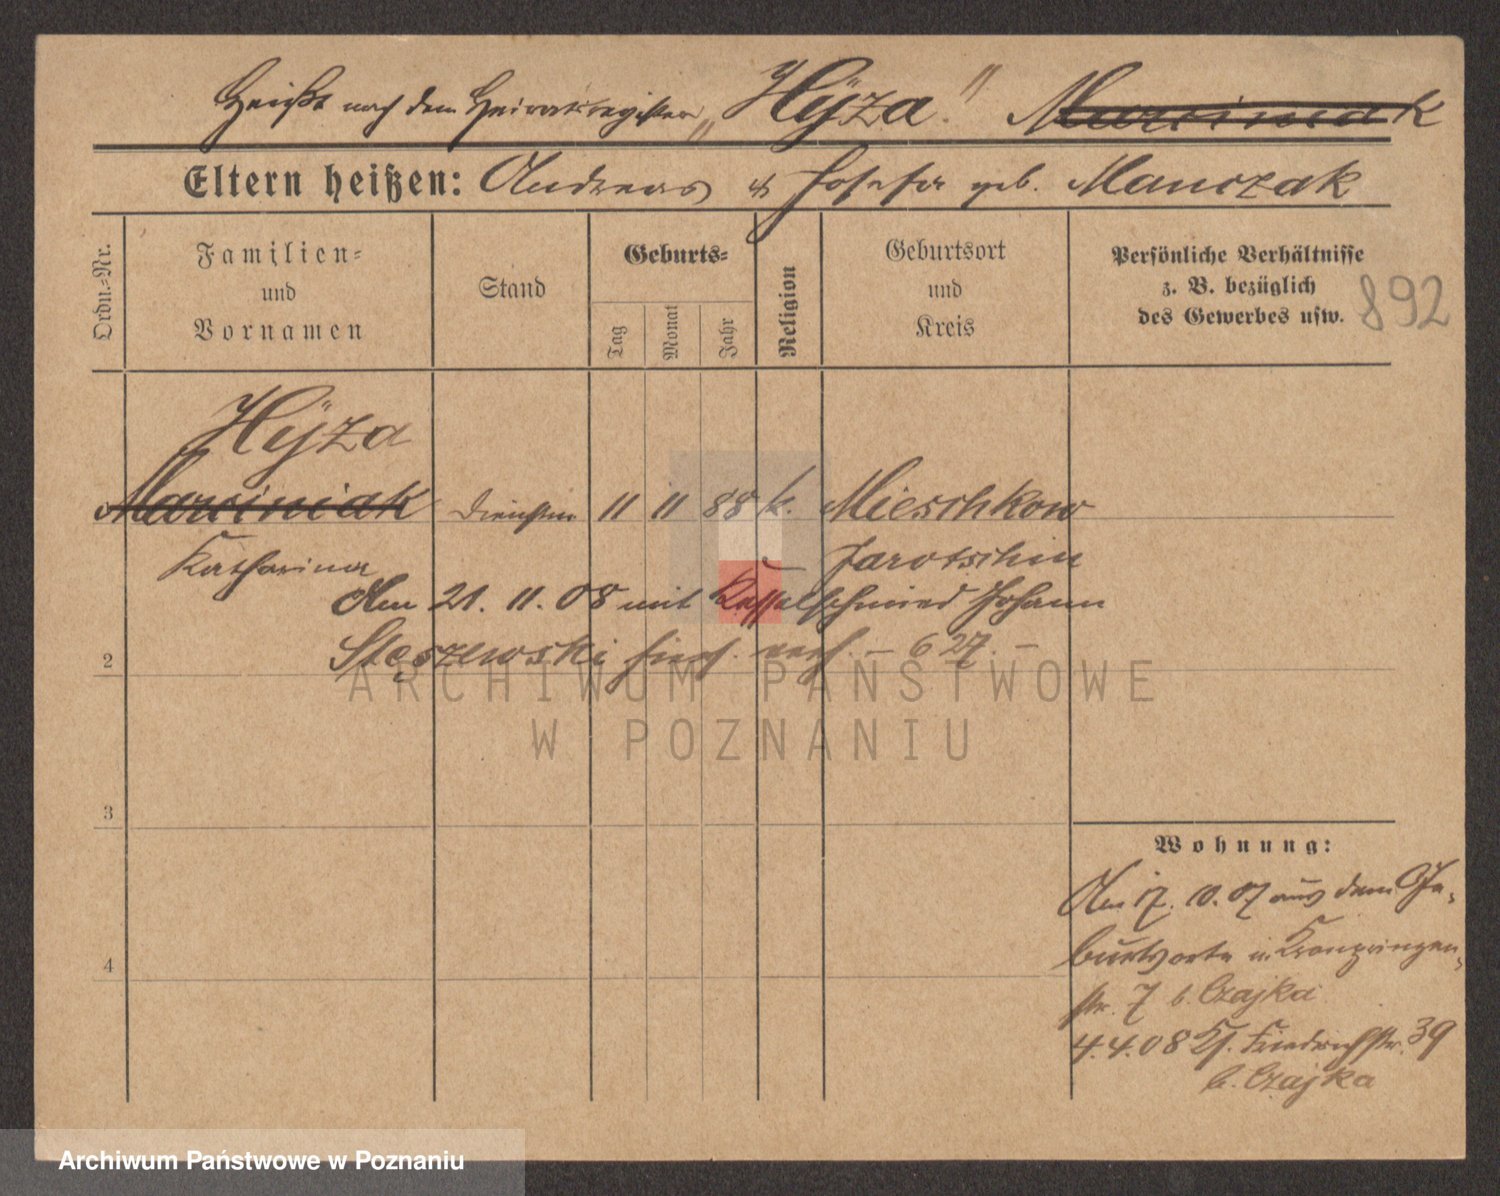 Heißt nach dem Heiratsregister „Hÿza." Marciniak
Eltern heißen: Andreas & Josefa geb. Manczak
Ordn.=Nr.
Familien=
und
Vornamen
Stand
Geburts=
Tag
Monat
Jahr
Religion
Geburtsort
und
Kreis
Persönliche Verhältnisse
z. B. bezüglich
des Gewerbes usw.
892
Hÿza
Marciniak
11 11 88 k. Mieschkow
Katharina
Jarotschin
Am 21. 11. 08 mit Kesselschmied Johann
2
Stęszewski hier verh. – 627. –
ARCHIWUM PAŃSTWOWE
W POZNANIU
3
Wohnung:
Am 17. 10. 07 aus dem Ge-
burtsorte in Kronprinzen-
str. 7 b. Czajka
4
4.4.08 Kf. Friedrichstr. 39
b. Czajka
Archiwum Państwowe w Poznaniu